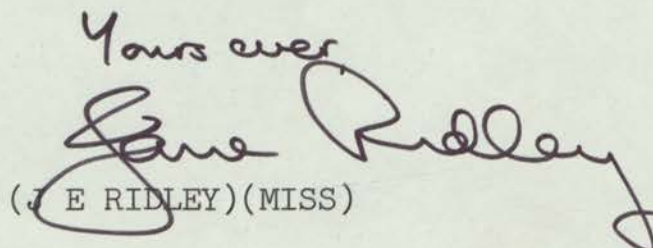 Yours ever
Jane Ridley
(J E RIDLEY)(MISS)